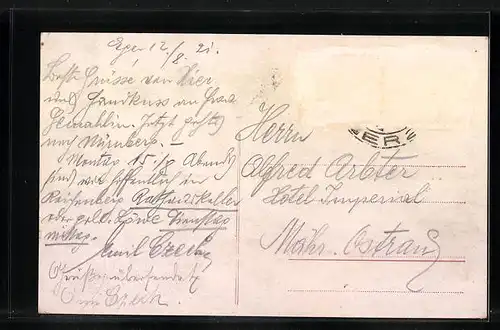 Eger 12/8. 21.
Beste Grüsse von hier
und Handkuss an Frau
Gemahlin. Jetzt geht's
nach Nürnberg. —
Montag 15./8 Abends
sind wir hoffentlich in
Reichenberg Rathauskeller
oder gold. Löwe Dienstag
mittag.
Emil
Grüße übersendet
Herrn
Alfred Arbter
Hotel Imperial
Mähr. Ostrau